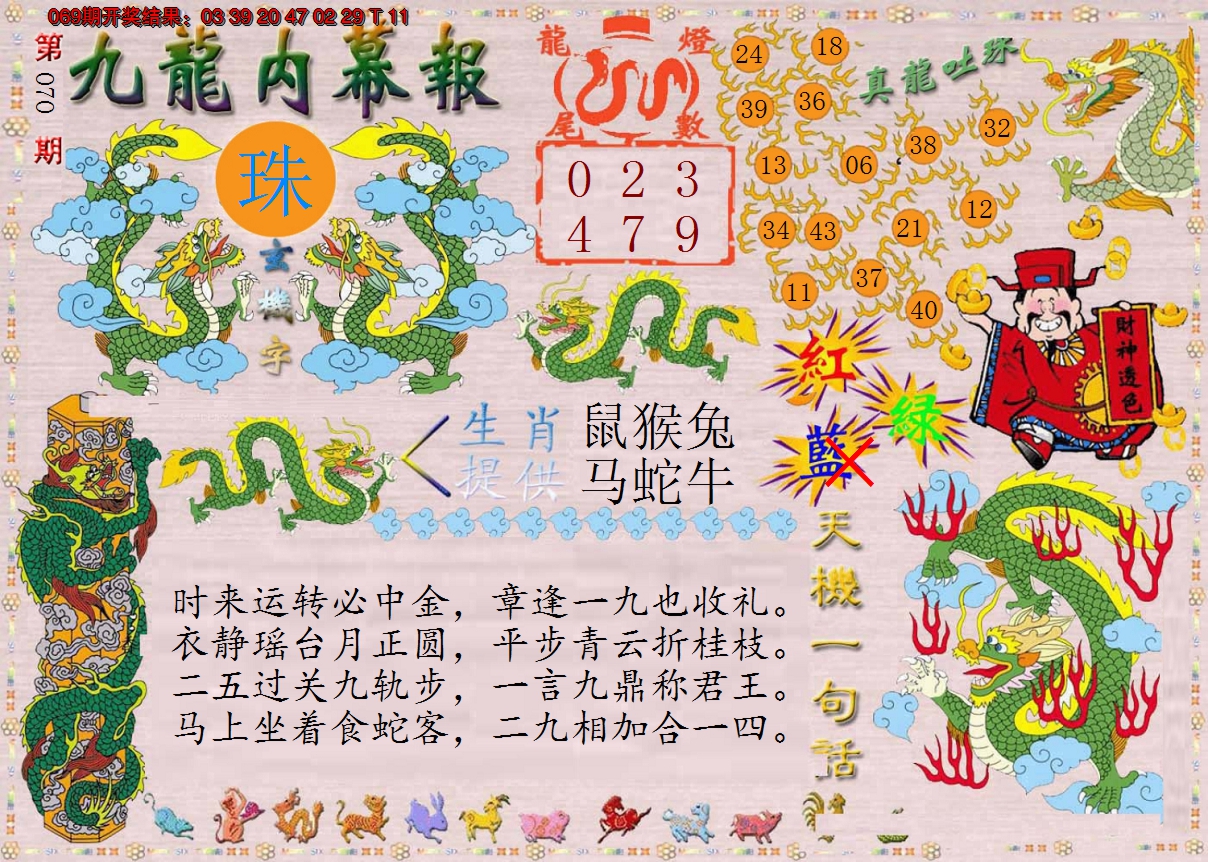 069期开奖结果：03 39 20 47 02 29 T 11
第070期
九龍内幕報
珠
玄機字
龍燈
尾數
0 2 3
4 7 9
真龍吐珠
24 18
39 36
38 32
13 06
12
34 43 21
37
11 40
財神透色
紅
綠
藍
生肖 鼠猴兔
提供 马蛇牛
天機一句话
时来运转必中金，章逢一九也收礼。
衣静瑶台月正圆，平步青云折桂枝。
二五过关九轨步，一言九鼎称君王。
马上坐着食蛇客，二九相加合一四。